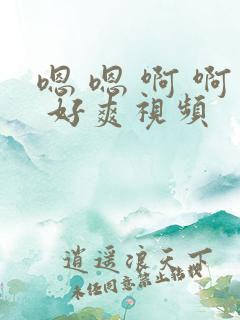 嗯嗯啊啊
好爽視頻
逍遥浪天下
未经同意禁止转载